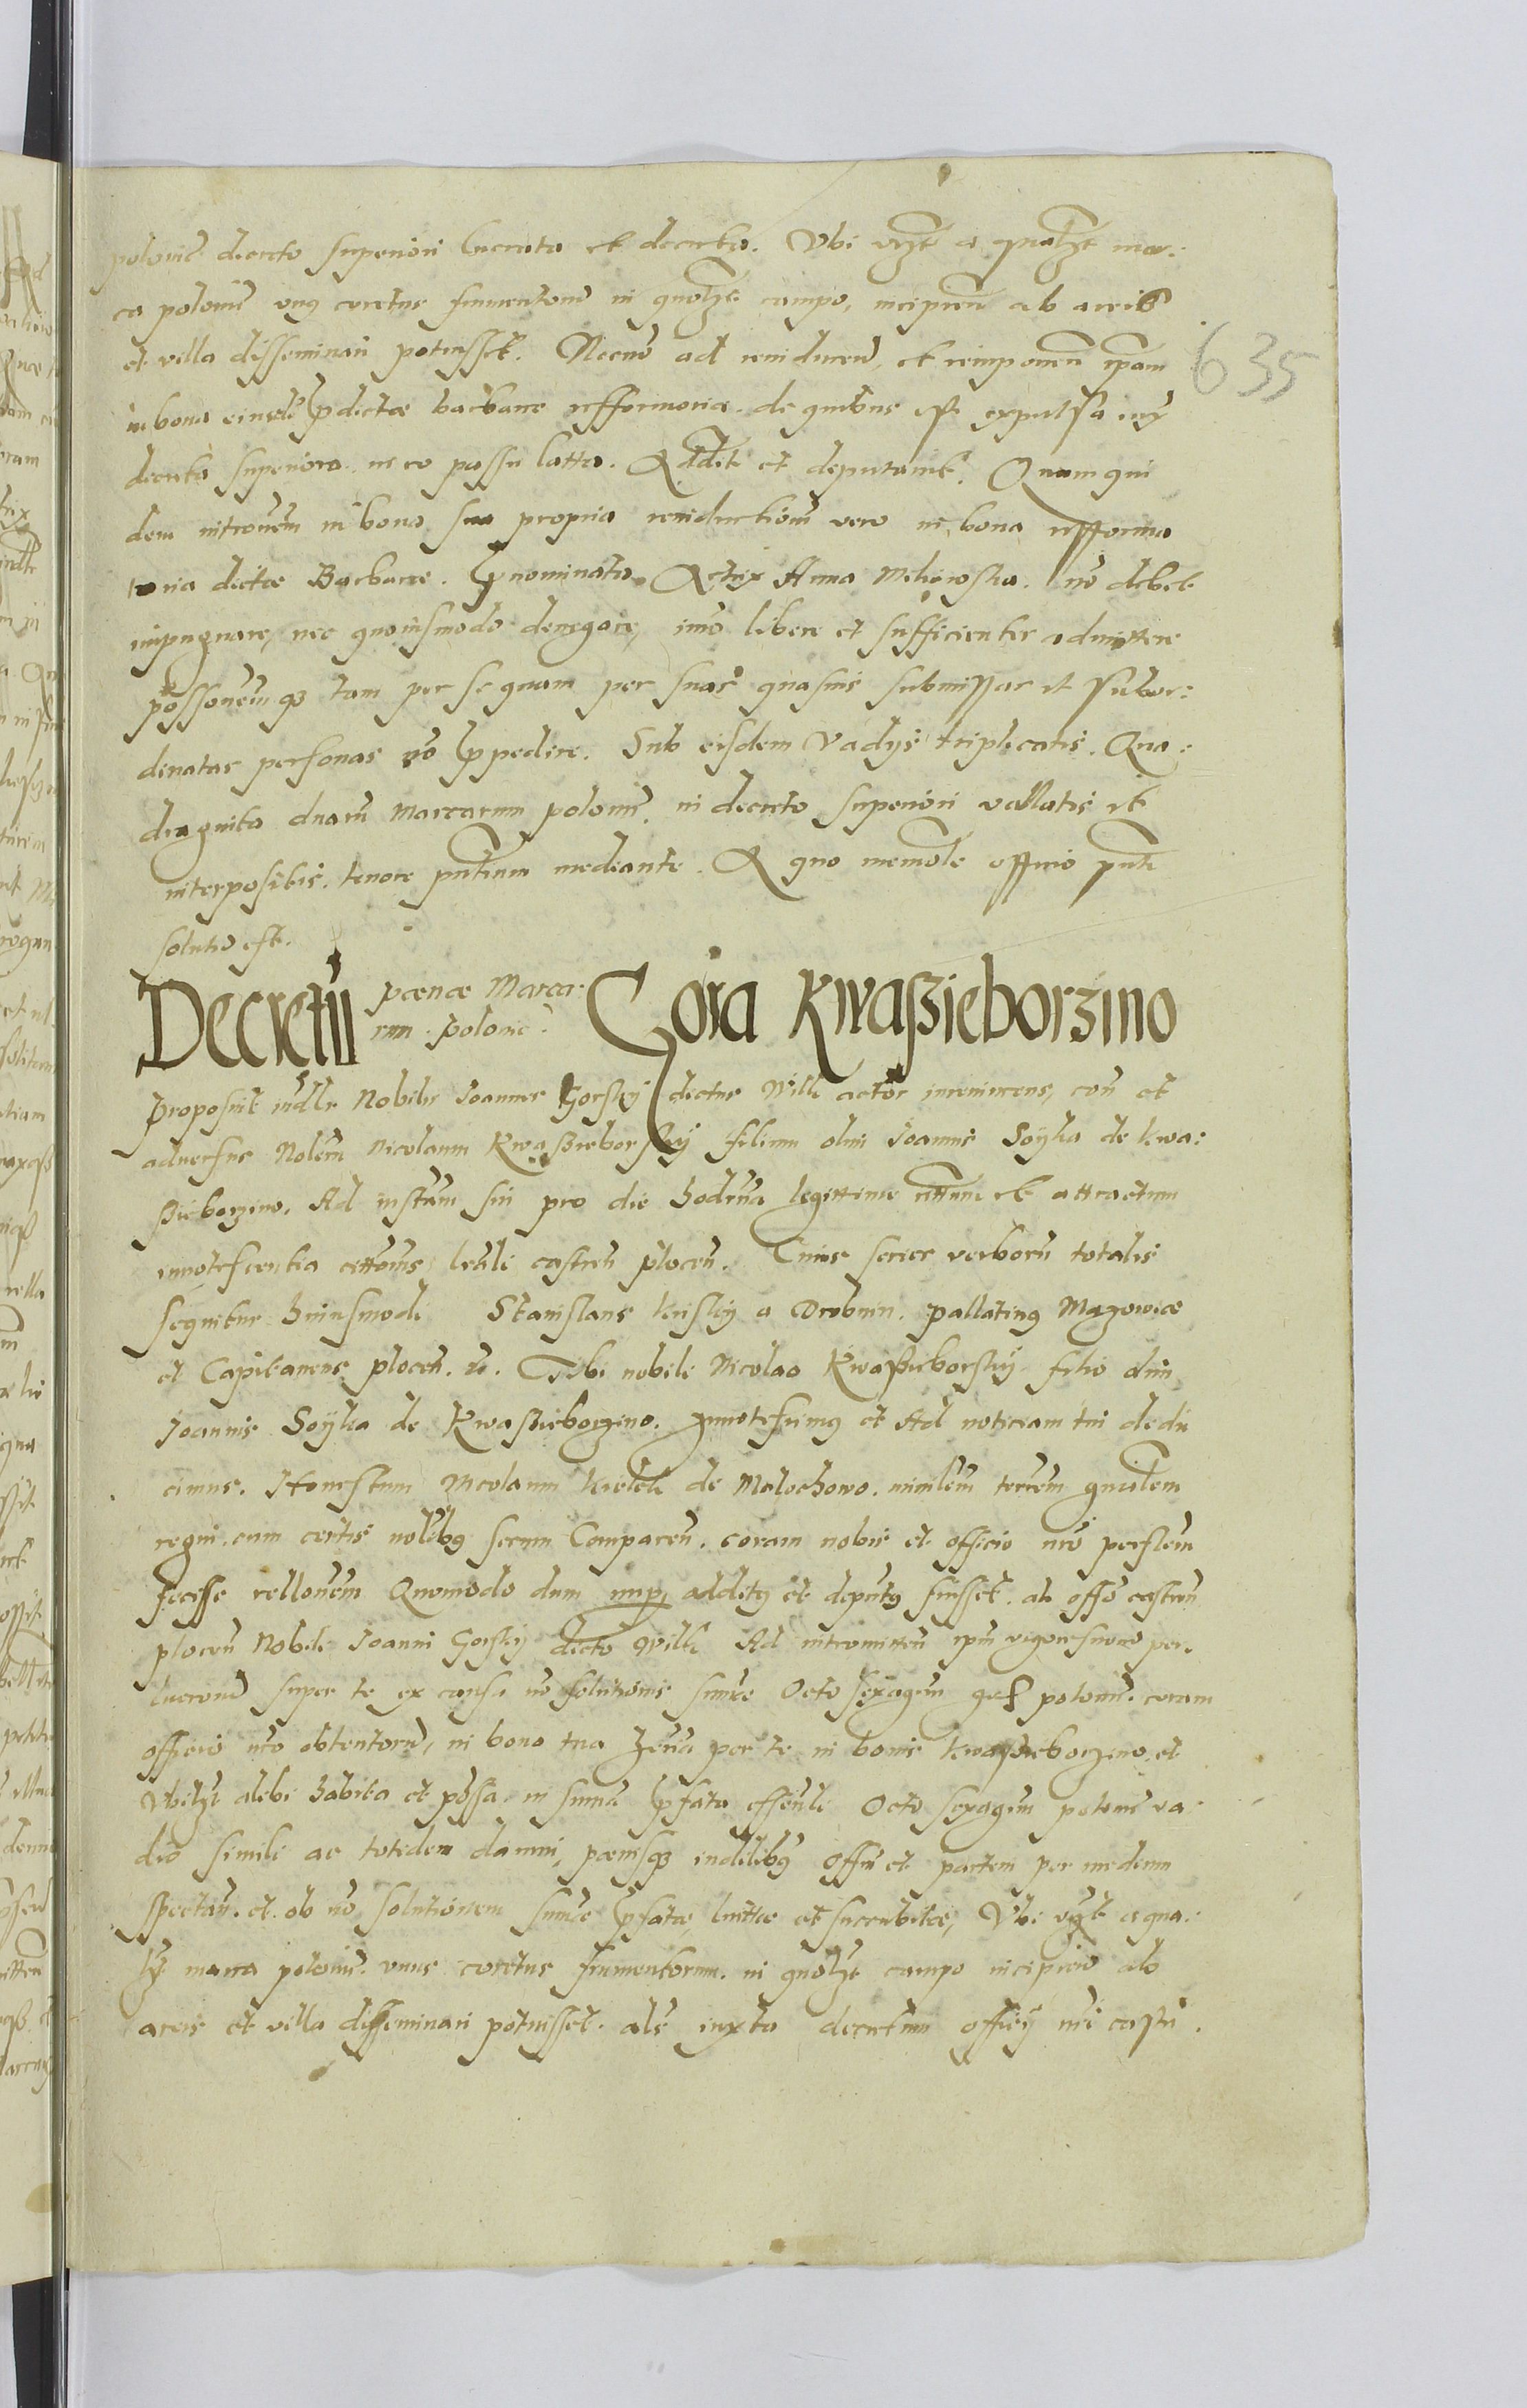 polonis decreto superiori lucrata et decreta. Vbi vrzt a qualzt mar:
ca polonis vnus coretus frumentorum in quolzt campo, incipien ab areis
et villa disseminari potuisset. Necno ad reinducen et reimponen ipam
in bona eiusde pdictae barbarae refformoria. de quibus est expulsa iux
decreta superiora. in eo passu latta. Addit et deputauit. Quam qui
dem intronem in bona sua propria reinductionem vero in bona refforma
toria dictae Barbarae. pnominata Actrix Anna no debet
impugnare, nec quouismodo denegare, imo libere et sufficienter admittere
possonemqz tam per se quam per suas quasuis submissas et subor:
dinatas personas no ppedire. Sub eisdem Vadijs triplicatis. Qua:
draginta duaru Marcarum polonis. in decreto superiori vallatis et
interpositis, tenore pntium mediante. A quo memole officio pnti
solutu est.
Decretu paenae Marca:
rum. polonic. Gora Kwaßieborzino
Proposuit iudlr Nobilis Joannes Gorskij dictus Wilk actor con et
aduersus Nolem Nicolaum Kwaßieborskij filium olim Joannis Soyka de Kwa:
ßieborzino. Ad instam sui pro die hodrna legittime cittatum et attractum
innotescentia cittonis lrali castren plocen. Cuius series verborum totalis
sequitur huiusmodi Stanislaus Krliskij a Drobnin. pallatinus Mazowiae
et Capitaneus plocen. Tibi nobili Nicolao Kwaßieborskij filio olim
Joannis Soyka de Kwaßieborzino. Innotescimus et Ad noticiam tui dedu
cimus. Honestum Nicolaum de Malochowo. minilem terrem gnalem
regni. cum certis nolibus secum Comparen. coram nobis et officio nro perslem
fecisse rellonem Quomodo dum additus et deputus fuisset. ab offo castren
plocen Nobili Joanni Gorskij dicto Wilk Ad intromitten ipm vigore
super te ex causa no solutionis summe Octo sexagen polonis. coram
officio nro obtentoru, in bona tua per te in bonis kwaßieborzino. et
Vbilzt alibi habita et possa. in summa pfata Octo sexagen polonis va
dio simili ac totidem damni, paenisqz iudlibus offm et partem per medium
spectan. et ob no solutionem summe pfatae, luittae et succubitae, Vbi vrzt a qua:
lzt marca polonis. vnus coretus frumentorum. in quolzt campo incipien ab
areis et villa disseminari potuisset. als iuxta decretum officij nri castri.
635